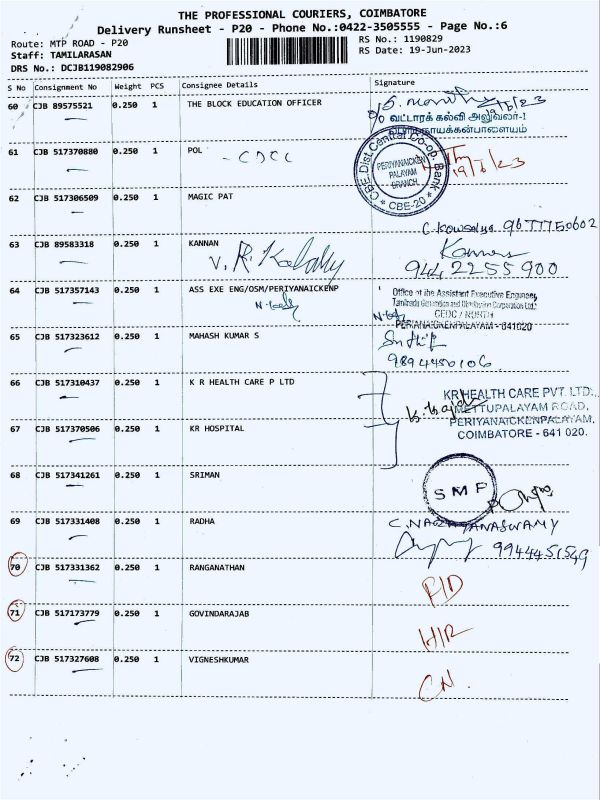 THE PROFESSIONAL COURIERS, COIMBATORE
Delivery Runsheet - P20 - Phone No.:0422-3505555 - Page No.:6
Route: MTP ROAD - P20
RS No.: 1190829
Staff: TAMILARASAN
RS Date: 19-Jun-2023
DRS No.: DCJB119082906
S No Consignment No Weight PCS Consignee Details Signature
60 CJB 89575521 0.250 1 THE BLOCK EDUCATION OFFICER
19/6/23
வட்டாரக் கல்வி அலுவலர்-I
61 CJB 517370880 0.250 1 POL - CDCC
CBE.Dist.Central Co-op. Bank
PERIYANAICKEN
PALAYAM
BRANCH
* CBE-20 *
19/6/23
62 CJB 517306509 0.250 1 MAGIC PAT
C. Kowsalya 9677750602
63 CJB 89583318 0.250 1 KANNAN
9442255900
64 CJB 517357143 0.250 1 ASS EXE ENG/OSM/PERIYANAICKENP
Office of the Assistant Executive Engineer,
Tamilnadu Generation and Distribution Corporation Ltd.
CEDC / NORTH
PERIYANAICKENPALAYAM - 641020
65 CJB 517323612 0.250 1 MAHASH KUMAR S
9894450106
66 CJB 517310437 0.250 1 K R HEALTH CARE P LTD
KR HEALTH CARE PVT. LTD.,
METTUPALAYAM ROAD,
PERIYANAICKENPALAYAM,
COIMBATORE - 641 020.
67 CJB 517370506 0.250 1 KR HOSPITAL
68 CJB 517341261 0.250 1 SRIMAN
SMP
69 CJB 517331408 0.250 1 RADHA
C. NAGARANASWAMY
9944451549
70 CJB 517331362 0.250 1 RANGANATHAN
P/D
71 CJB 517173779 0.250 1 GOVINDARAJAB
H/R
72 CJB 517327608 0.250 1 VIGNESHKUMAR
CN.